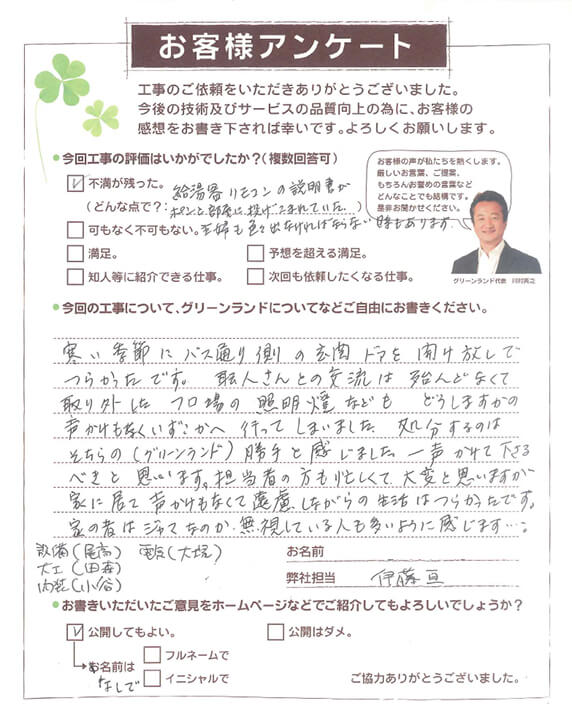 お客様アンケート
工事のご依頼をいただきありがとうございました。
今後の技術及びサービスの品質向上の為に、お客様の
感想をお書き下されば幸いです。よろしくお願いします。
今回工事の評価はいかがでしたか?(複数回答可)
不満が残った。 給湯器リモコンの説明書が
(どんな点で?: ポンと部屋に投げこまれていた。)
可もなく不可もない。主婦も色々出なければならない時もあります。
満足。
予想を超える満足。
知人等に紹介できる仕事。
次回も依頼したくなる仕事。
お客様の声が私たちを熱くします。
厳しいお言葉、ご提案、
もちろんお褒めの言葉など
どんなことでも結構です。
是非お聞かせください。
グリーンランド代表
今回の工事について、グリーンランドについてなどご自由にお書きください。
寒い季節にバス通り側の玄関ドアを開け放しで
つらかったです。 職人さんとの交流は殆んどなくて
取り外した フロ場の照明燈なども どうしますかの
声かけもなくいずこかへ行ってしまいました。処分するのは
そちらの(グリーンランド)勝手と感じました。一声かけて下さる
べきと思います。担当者の方も忙しくて大変と思いますが
家に居て声がけもなくて遠慮しながらの生活はつらかったです。
家の者はジャマなのか、無視している人も多いように感じます…。
設備(尾高) 電気(大塚)
大工(田森)
内装(小谷)
お名前
弊社担当 伊藤亘
お書きいただいたご意見をホームページなどでご紹介してもよろしいでしょうか?
公開してもよい。
公開はダメ。
お名前は
なしで
フルネームで
イニシャルで
ご協力ありがとうございました。